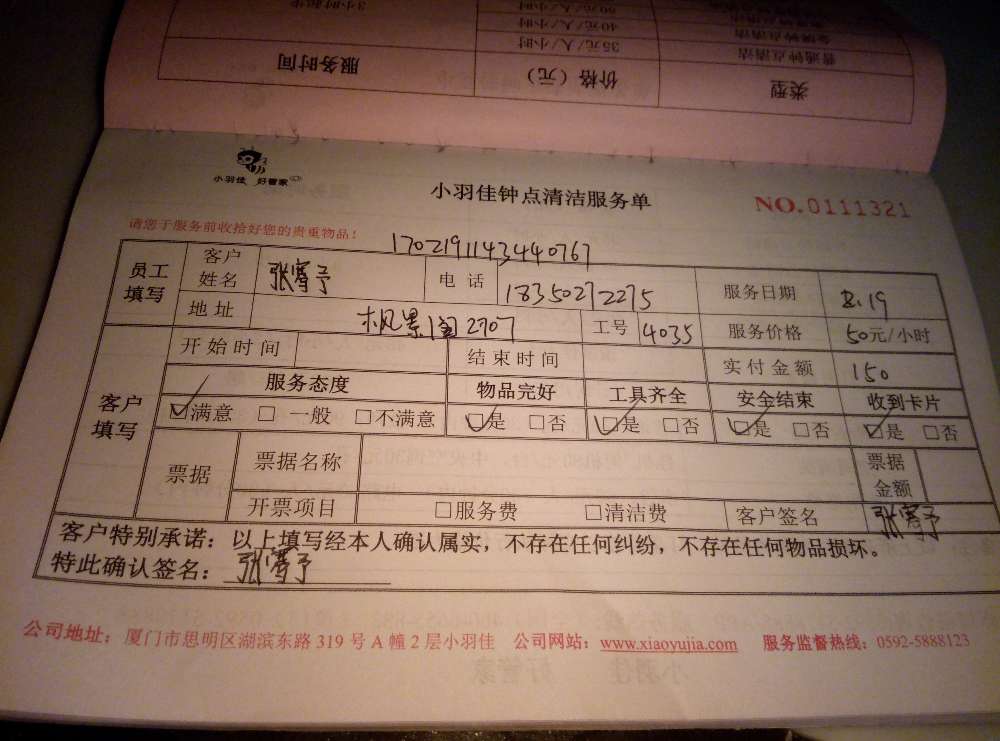 3小时起步
60元/人/小时
40元/人/小时
金牌钟点清洁
35元/人/小时
普通钟点清洁
服务时间 价格（元） 类型
小羽佳 好管家
小羽佳钟点清洁服务单 NO.0111321
请您于服务前收拾好您的贵重物品！
1702191143440767
员工填写 客户姓名 张骞予 电话 18350272275 服务日期 8.19
地址 枫景阁2707 工号 4035 服务价格 50元/小时
客户填写 开始时间 结束时间 实付金额 150
服务态度 物品完好 工具齐全 安全结束 收到卡片
☑满意 □一般 □不满意 ☑是 □否 ☑是 □否 ☑是 □否 ☑是 □否
票据 票据名称 票据金额
开票项目 □服务费 □清洁费 客户签名 张骞予
客户特别承诺：以上填写经本人确认属实，不存在任何纠纷，不存在任何物品损坏。
特此确认签名：张骞予
公司地址：厦门市思明区湖滨东路319号A幢2层小羽佳 公司网站：www.xiaoyujia.com 服务监督热线：0592-5888123